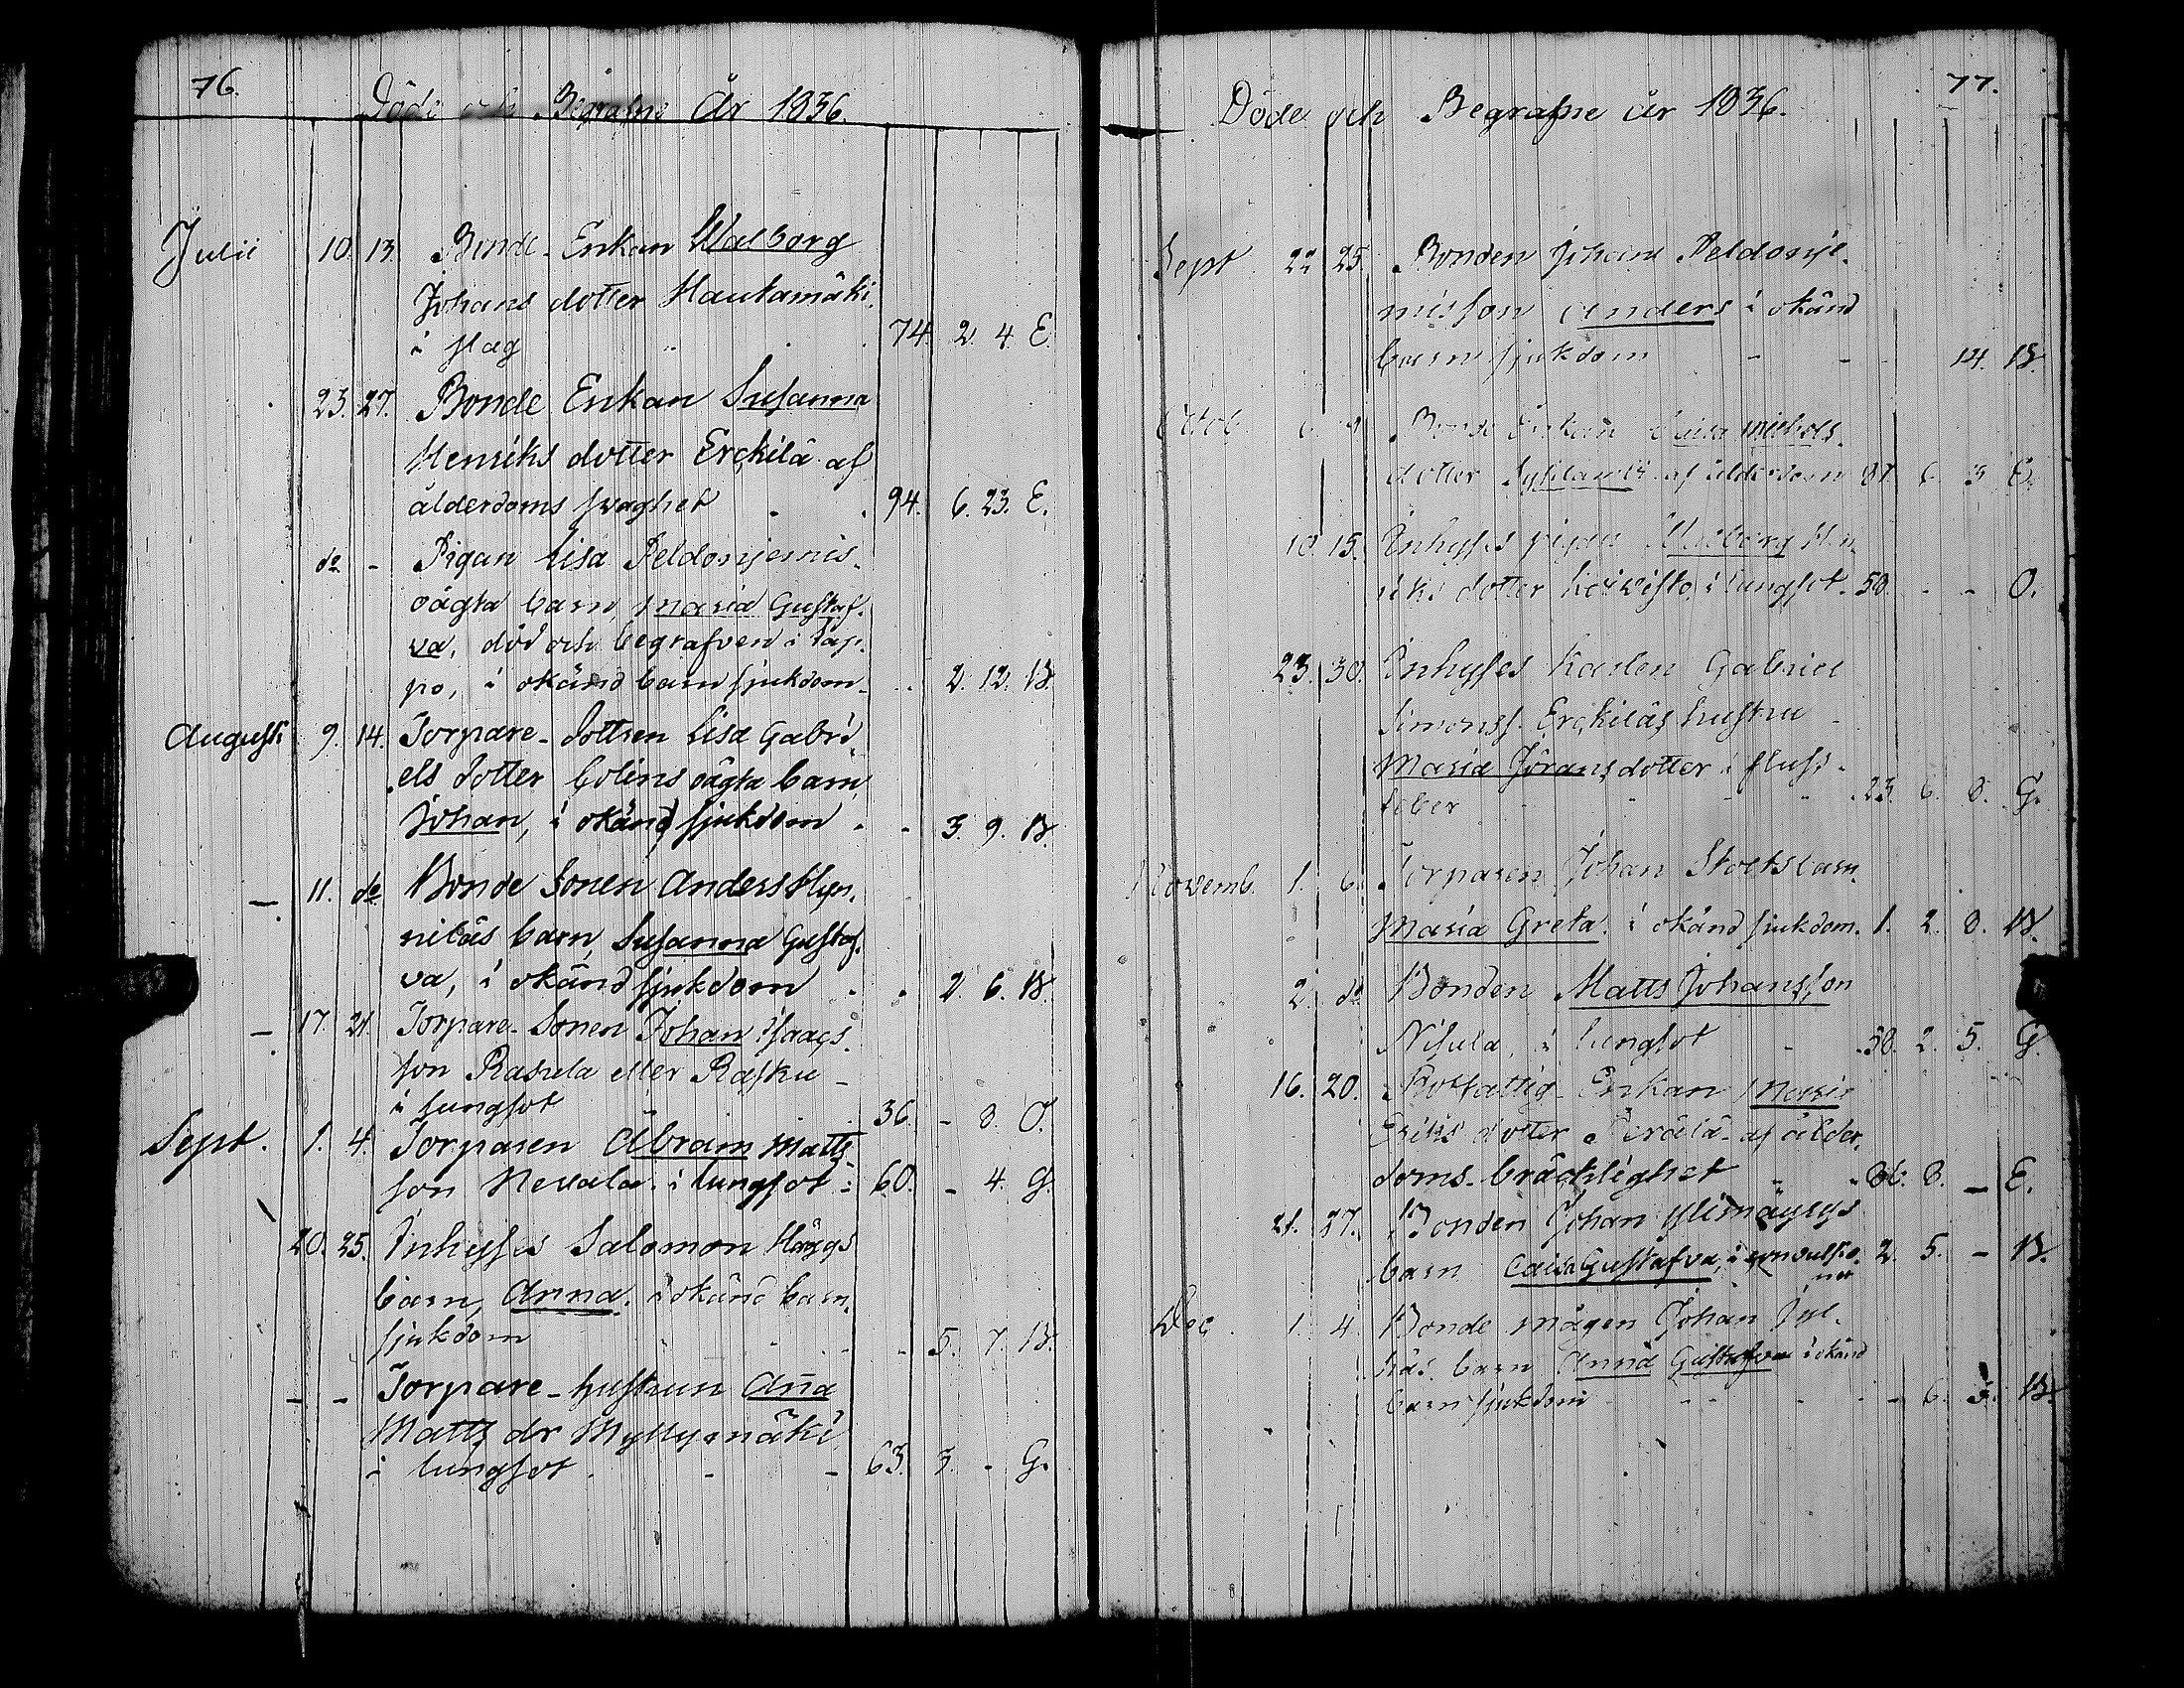 76.
Döde och Begrafne År 1836.
Julii 10. 13. Bonde-Enkan Walborg
Johans dotter Hautamäki
i slag 74. 2. 4. E.
23. 27. Bonde Enkan Susanna
Henriks dotter Erckilä af
ålderdoms swaghet 94. 6. 23. E.
do - Pigan Lisa Peldoniemis
oägta barn, Maria Gustaf-
va, död och begrafven i Lap-
po, i okänd barn sjukdom 2. 12. B.
Augusti 9. 14. Torpare-Dottren Lisa Gabri-
els dotter Colins oägta barn,
Johan, i okänd sjukdom - - 3. 9. B.
11. do Bonde Sonen Anders Hyn-
niläs barn, Susanna Gustaf-
va, i okänd sjukdom - - 2. 6. B.
17. 21. Torpare-Sonen Johan Isaacs-
son Rasula eller Rasku
i lungsot 36. - 8. O.
Sept. 1. 4. Torparen Abram Matts-
son Nevala i lungsot 60. - 4. G.
20. 25. Inhyses Salomon Häggs
barn, Anna i okänd barn
sjukdom - 5. 7. B.
- - Torpare-hustrun Aña
Matts dr Myllymäki
i lungsot 63. 3. - G.
77.
Döde och Begrafne år 1836.
Sept 22 25. Bonden Johans Peldonie-
mis son Anders i okänd
barn sjukdom - - 14. B.
Octob. Bonde Enkan Caisa Michels
dotter af ålderdom 87. 6. 3 E.
10. 15. Inhyses pigan Walborg Hen-
riks dotter Koivisto i lungsot. 58. - - O.
23. 30. Inhyses Karlen Gabriel
Simonss. Erckiläs hustru
Maria Jöransdotter i fluss-
feber 23. 6. 8. G.
Novemb. 1. 6. Torparen Johan Stocks barn
Maria Greta i okänd sjukdom. 1. 2. 8. B.
2. do Bonden Matts Johansson
Nisula, i lungsot 38. 2. 5. G.
16. 20. Rotfattig-Enkan Maria
Eriks dotter Perälä af ålder-
doms-bräcklighet 86. 8. - E.
21. 27. Bonden Johan Ylimäyrys
barn Caisa Gustafva, i convulsio- 2. 5. - B.
ner
Dec 1. 4. Bonde mågen Johan
barn Anna Gustafva i okänd
barn sjukdom - 6. 3. B.